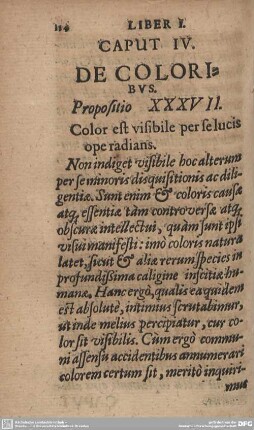 114 LIBER I.
CAPUT IV.
DE COLORI-
BVS.
Propositio XXXVII.
Color est visibile per se lucis
ope radians.
Non indiget visibile hoc alterum
per se minoris disquisitionis ac dili-
gentiæ. Sunt enim & coloris causæ
atq; essentiæ tàm controversæ atq;
obscuræ intellectui, quàm sunt ipsi
visui manifesti: imò coloris natura
latet, sicut & aliæ rerum species in
profundissima caligine inscitiæ hu-
manæ. Hanc ergò, qualis ea quidem
est absolutè, intimius scrutabimur,
ut inde melius percipiatur, cur co-
lor sit visibilis. Cum ergò commu-
ni assensu accidentibus annumerari
colorem certum sit, meritò inquiri-
mus
DFG